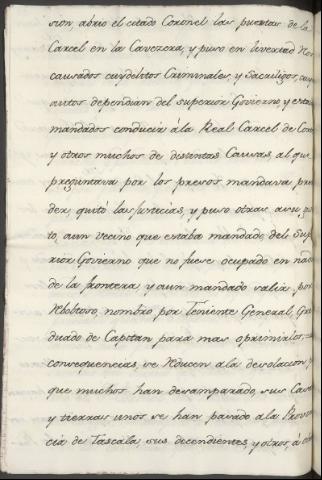 sion, abrio el citado Coronel las puertas de la
Carcel en la Cavezera, y puso en livertad
causados cuydelitos Criminales, y Sacrilegos, cuy
autos dependian del superior Govierno, y esta
mandados conducir á la Real Carcel de Cor
y otros muchos de distintas Causas, al que
preguntava por los presos mandava pren
der, quitó las Justicias, y puso otras a su gus
to, a un vecino que estaba mandado del Sup
rior Govierno que no fuese ocupado en nada
de la frontera y aun mandado salir por
Reboltoso, nombro por Teniente General, Gra
duado de Capitan para mas oprimirlos,
consequencias, se reducen ala desolacion, p
que muchos han desamparado, sus Casas
y tierras unos se han pasado ala Provin
cia de Tascala, sus decendientes, y otros, á